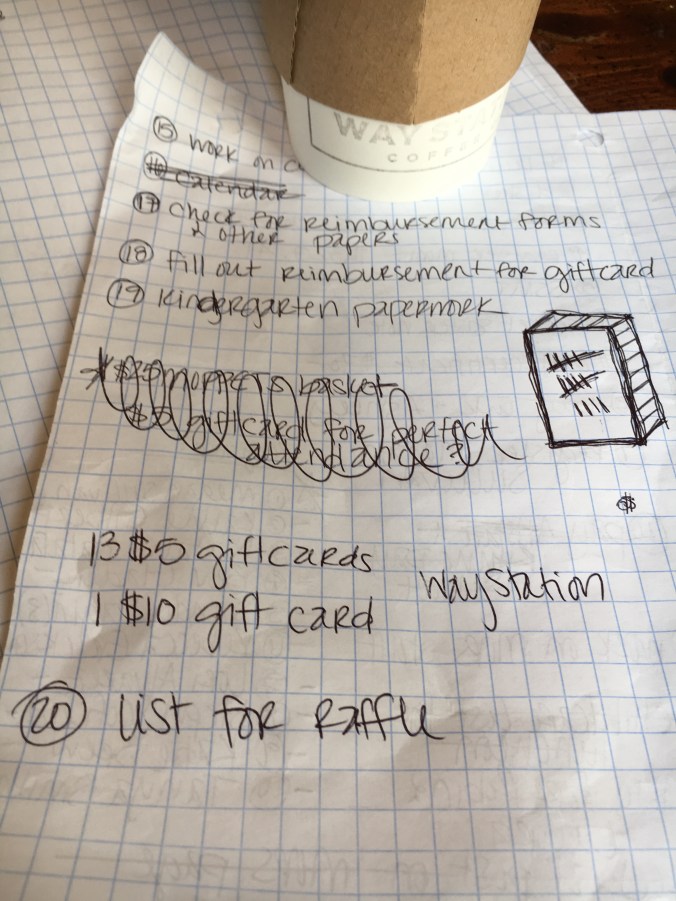 WAY STAT
COFFEE
15 work on a
16 calendar
17 Check for reimbursement forms
& other papers
18 fill out reimbursement for giftcard
19 Kindergarten paperwork
basket
gift card for perfect
attendance ?
$
13 $5 giftcards
1 $10 gift card
WayStation
20 List for Raffle